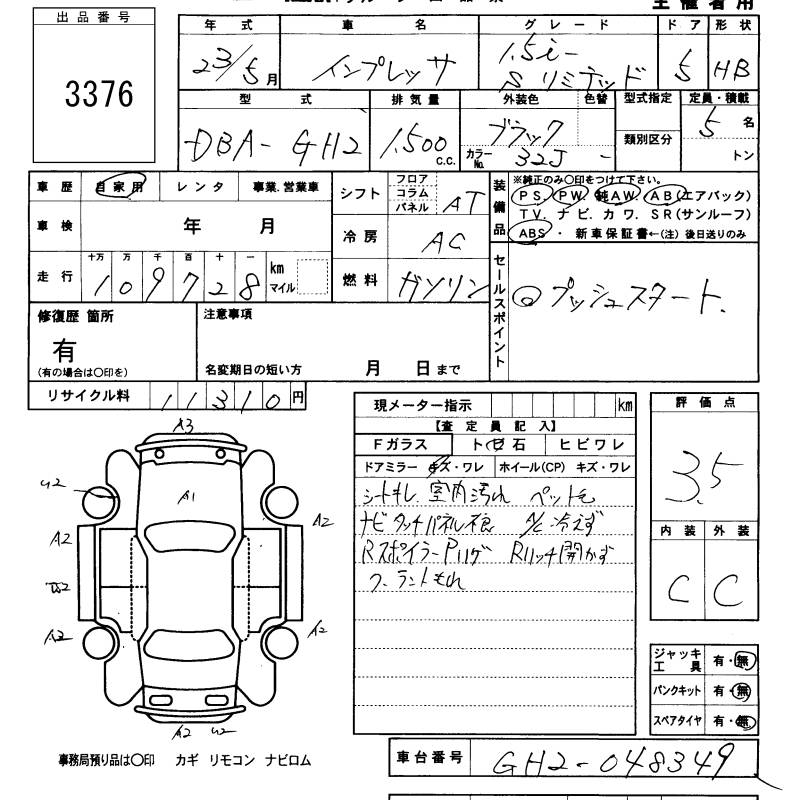 主催者用
出品番号
3376
年式 車名 グレード ドア 形状
23/5月 インプレッサ 1.5i-S リミテッド 5 HB
型式 排気量 外装色 色替 型式指定 定員・積載
DBA-GH2 1,500 c.c. ブラック カラーNo. 32J - 類別区分 5名 トン
車歴 自家用 レンタ 事業.営業車 シフト フロア コラム パネル AT
装備品 ※純正のみ〇印をつけて下さい。
PS. PW. 純AW. AB(エアバック)
TV. ナビ. カワ. SR(サンルーフ)
ABS ・ 新車保証書←(注) 後日送りのみ
車検 年 月 冷房 AC
走行 十万 万 千 百 十 一 km マイル
109728
燃料 ガソリン
セールスポイント
◎プッシュスタート.
修復歴 箇所
有
(有の場合は〇印を)
注意事項
名変期日の短い方 月 日まで
リサイクル料 11310円
現メーター指示 km
【査定員記入】
Fガラス トビ石 ヒビワレ
ドアミラー キズ・ワレ ホイール(CP) キズ・ワレ
シートキレ. 室内汚れ ペット毛
ナビタッチパネル不良 A/C冷えず
RスポイラーPハゲ Rハッチ開かず
ク-ラントもれ
評価点
3.5
内装 外装
C C
ジャッキ工具 有・無
パンクキット 有・無
スペアタイヤ 有・無
A3
U2
A1
A2
A2
A2
A2
A2 U2
事務局預り品は〇印 カギ リモコン ナビロム
車台番号 GH2-048349